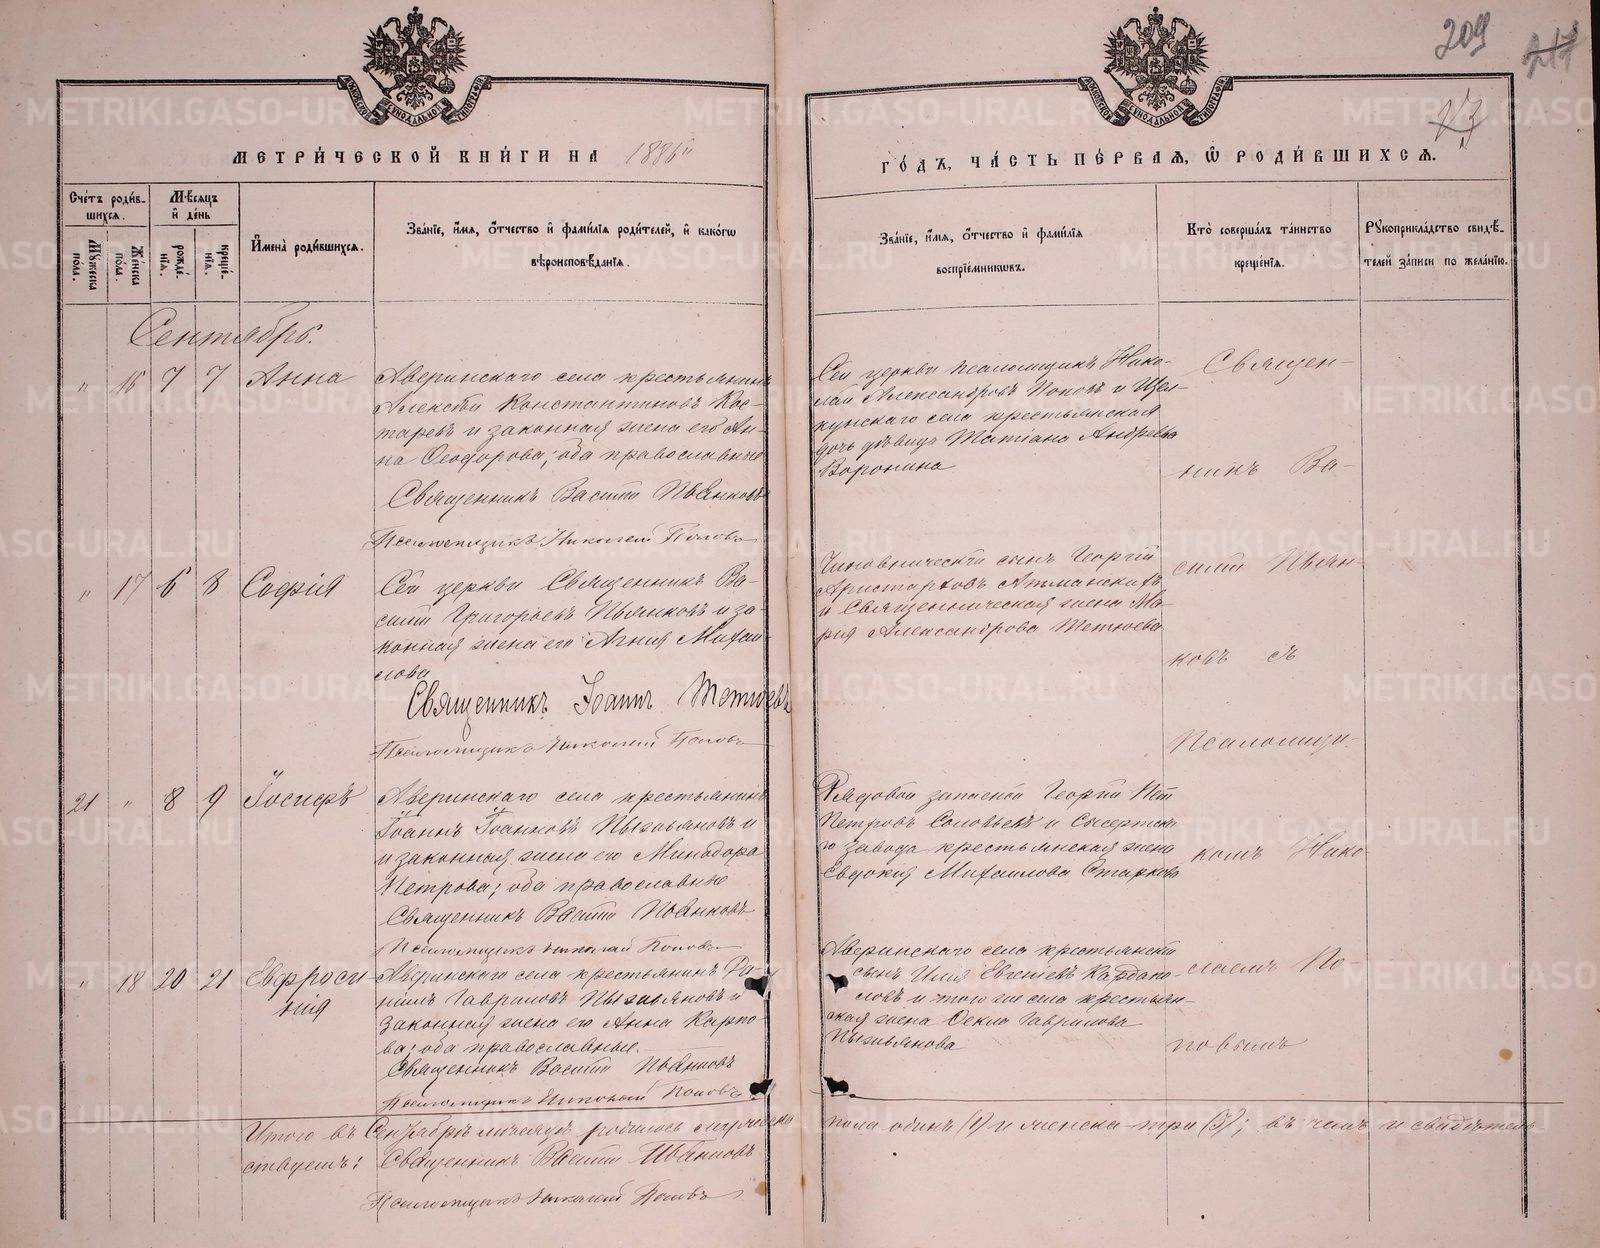 209
217
МЕТРИ́ЧЕСКОЙ КНИ́ГИ НА 1886й
ГО́ДЪ, ЧА́СТЬ ПЕ́РВАЯ, Ѿ РОДИ́ВШИХСЯ.
Сче́тъ роди́в-
шихся.
Мꙋ́жеска по́ла.
Же́нска по́ла.
Мѣ́сяцъ
и҆ де́нь
рожде́-
нїя.
креще́-
нїя.
И҆мена̀ роди́вшихся.
Зва́нїе, и҆́мя, ѻ҆́тчество и҆ фами́лїя роди́телей, и҆ како́гѡ
вѣроисповѣ́данїя.
Зва́нїе, и҆́мя, ѻ҆́тчество и҆ фами́лїя
воспрїе́мникѡвъ.
Кто̀ соверша́лъ та́инство
креще́нїя.
Рꙋкоприкла́дство свидѣ́-
телей за́писи по жела́нїю.
Сентябрь.
" 16 7 7 Анна
Аверинскаго села крестьянинъ
Алексѣй Константиновъ Кос-
таревъ и законная жена его Ан-
на Ѳеодорова; оба православные
Священникъ Василій Пьянковъ
Псаломщикъ Николай Поповъ
Сей церкви псаломщикъ Нико-
лай Александровъ Поповъ и Щел-
кунскаго села крестьянская
дочь дѣвица Татіана Андреева
Воронина
" 17 6 8 Софія
Сей церкви Священникъ Ва-
силій Григорьевъ Пьянковъ и за-
конная жена его Агнія Михаи-
лова
Священникъ Іоаннъ Тетюевъ
Псаломщикъ Николай Поповъ
Чиновническій сынъ Георгій
Аристарховъ
и Священническая жена Ма-
рія Александрова Тетюева
21 " 8 9 Іосифъ
Аверинскаго села крестьянинъ
Іоаннъ Іоанновъ Пызьяновъ и
и законная жена его Минодора
Петрова; оба православные
Священникъ Василій Пьянковъ
Псаломщикъ Николай Поповъ
Рядовой запасной Георгій Пет
Петровъ Соловьевъ и Сысертска
го завода крестьянская жена
Евдокия Михаилова Старкова
" 18 20 21 Евфроси
нія
Аверинскаго села крестьянинъ Да-
ніилъ Гавриловъ Пызьяновъ и
законная жена его Анна Карпо-
ва; оба православные.
Священникъ Василій Пьянковъ
Псаломщикъ Николай Поповъ
Аверинскаго села крестьянскій
сынъ Илія Евгеніевъ Кардапо-
ловъ и того же села крестьян-
ская жена Ѳекла Гаврилова
Пызьянова
Священ-
никъ Ва-
силій Пьян-
ковъ съ
Псаломщи-
комъ Нико-
лаемъ По-
повымъ
Итого въ Сентябрѣ мѣсяцѣ родилось мужеска пола одинъ (1) и женска три (3); въ чемъ и свидѣтель-
ствуемъ: Священникъ Василій Пьянковъ
Псаломщикъ Николай Поповъ
METRIKI.GASO-URAL.RU